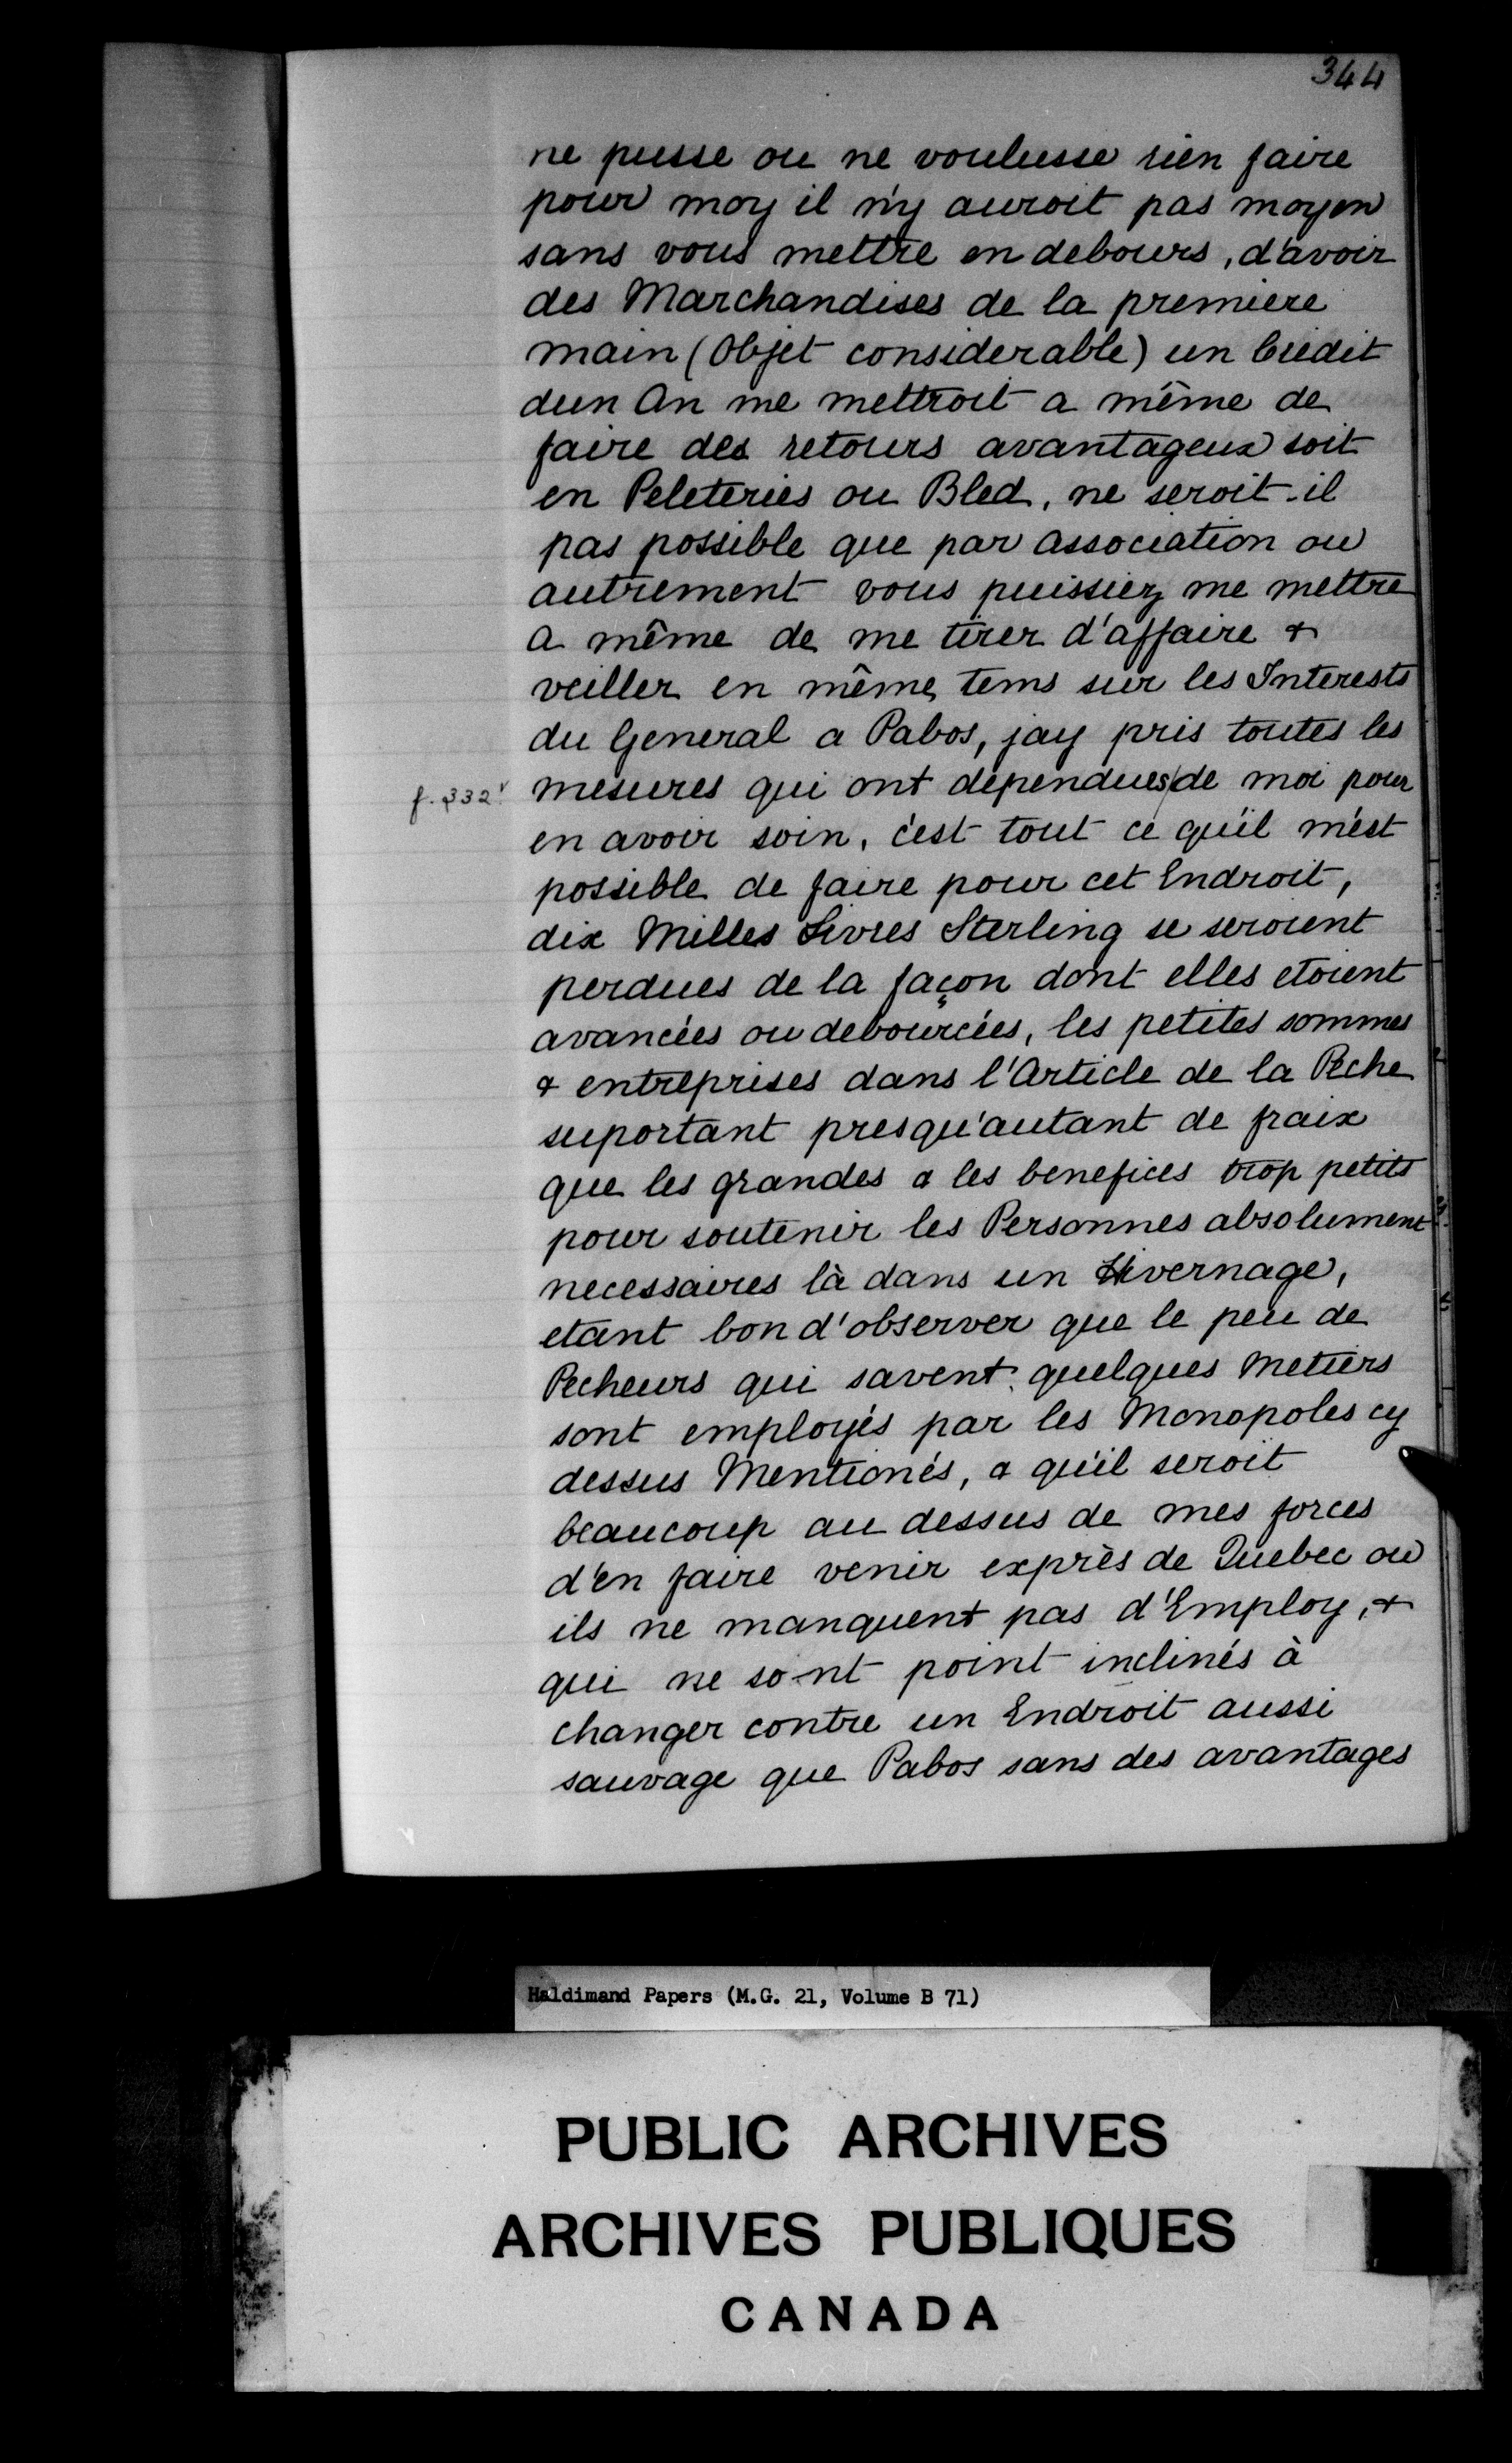 344
ne pusse ou ne voulusse rien faire
pour moy il n'y auroit pas moyen
sans vous mettre en debours, d'avoir
des Marchandises de la premiere
main (Objet considerable) un Credit
dun An me mettroit a même de
faire des retours avantageux soit
en Peleteries ou Bled, ne seroit-il
pas possible que par association ou
autrement vous puissiez me mettre
a même de me tirer d'affaire &
veiller en même tems sur les Interests
du General a Pabos, jay pris toutes les
f. 332v mesures qui ont dependues/de moi pour
en avoir soin, c'est tout ce qu'il m'est
possible de faire pour cet Endroit,
dix Milles Livres Sterling se seroient
perdues de la façon dont elles etoient
avancées ou debourcées, les petites sommes
& entreprises dans l'Article de la Peche
suportant presqu'autant de fraix
que les grandes & les benefices trop petits
pour soutenir les Personnes absolument
necessaires là dans un Hivernage,
etant bon d'observer que le peu de
Pecheurs qui savent quelques Metiers
sont employés par les Monopoles cy
dessus Mentionés, & qu'il seroit
beaucoup au dessus de mes forces
d'en faire venir exprès de Quebec ou
ils ne manquent pas d'Employ, &
qui ne sont point inclinés à
changer contre un Endroit aussi
sauvage que Pabos sans des avantages
Haldimand Papers (M.G. 21, Volume B 71)
PUBLIC ARCHIVES
ARCHIVES PUBLIQUES
CANADA